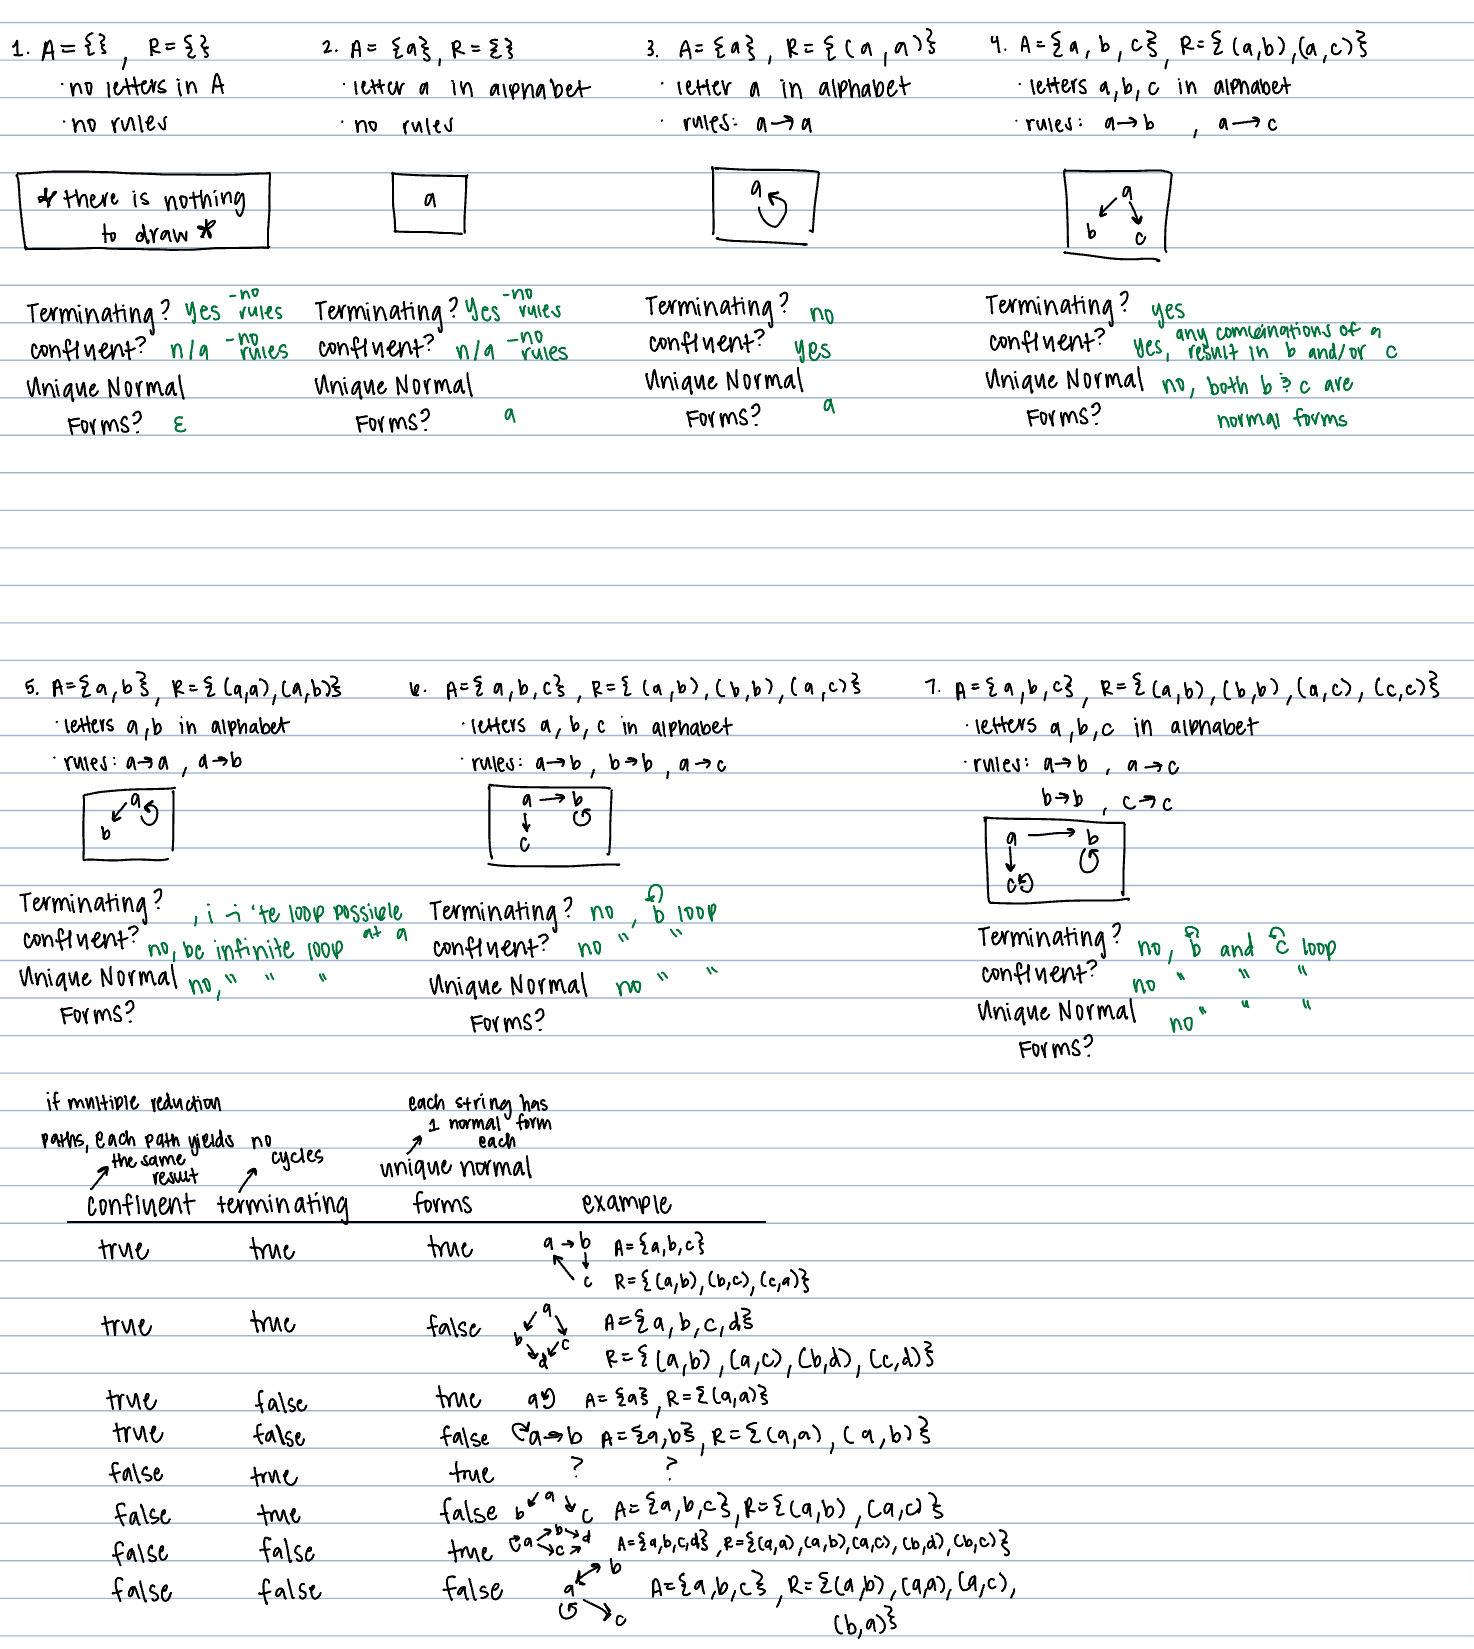 1. A={} , R={}
· no letters in A
· no rules
* there is nothing
to draw *
Terminating? yes -no rules
confluent? n/a -no rules
Unique Normal
Forms? ε
2. A= {a}, R= {}
· letter a in alphabet
· no rules
a
Terminating? Yes -no rules
confluent? n/a -no rules
Unique Normal
Forms? a
3. A= {a} , R= {(a,a)}
· letter a in alphabet
· rules: a→a
a
Terminating? no
confluent? yes
Unique Normal
Forms? a
4. A={a, b, c}, R={(a,b),(a,c)}
· letters a, b, c in alphabet
· rules: a→b , a→c
a
b c
Terminating? yes
confluent? yes, any combinations of a result in b and/or c
Unique Normal no, both b & c are
Forms? normal forms
5. A={a,b}, R={(a,a),(a,b)}
· letters a,b in alphabet
· rules: a→a , a→b
a
b
Terminating? , te loop possible
confluent? no, bc infinite loop at a
Unique Normal no, " " "
Forms?
6. A={a,b,c} , R={(a,b), (b,b), (a,c)}
· letters a, b, c in alphabet
· rules: a→b , b→b , a→c
a → b
↓
c
Terminating? no , b loop
confluent? no " "
Unique Normal no " "
Forms?
7. A={a,b,c}, R={(a,b), (b,b), (a,c), (c,c)}
· letters a,b,c in alphabet
· rules: a→b , a→c
b→b , c→c
a → b
↓
c
Terminating? no, b and c loop
confluent? no " " "
Unique Normal no " " "
Forms?
if multiple reduction
paths, each path yields
the same
result
no
cycles
each string has
1 normal form
each
unique normal
confluent terminating forms example
true true true a→b A={a,b,c}
c R={(a,b),(b,c),(c,a)}
true true false a A={a,b,c,d}
b c
d R={(a,b), (a,c), (b,d), (c,d)}
true false true a A= {a}, R={(a,a)}
true false false a→b A={a,b}, R={(a,a), (a,b)}
false true true ? ?
false true false b a c A={a,b,c}, R={(a,b), (a,c)}
false false true a b d c A={a,b,c,d} , R={(a,a),(a,b),(a,c),(b,d),(b,c)}
false false false a b A={a,b,c} , R={(a,b), (a,a), (a,c),
c (b,a)}